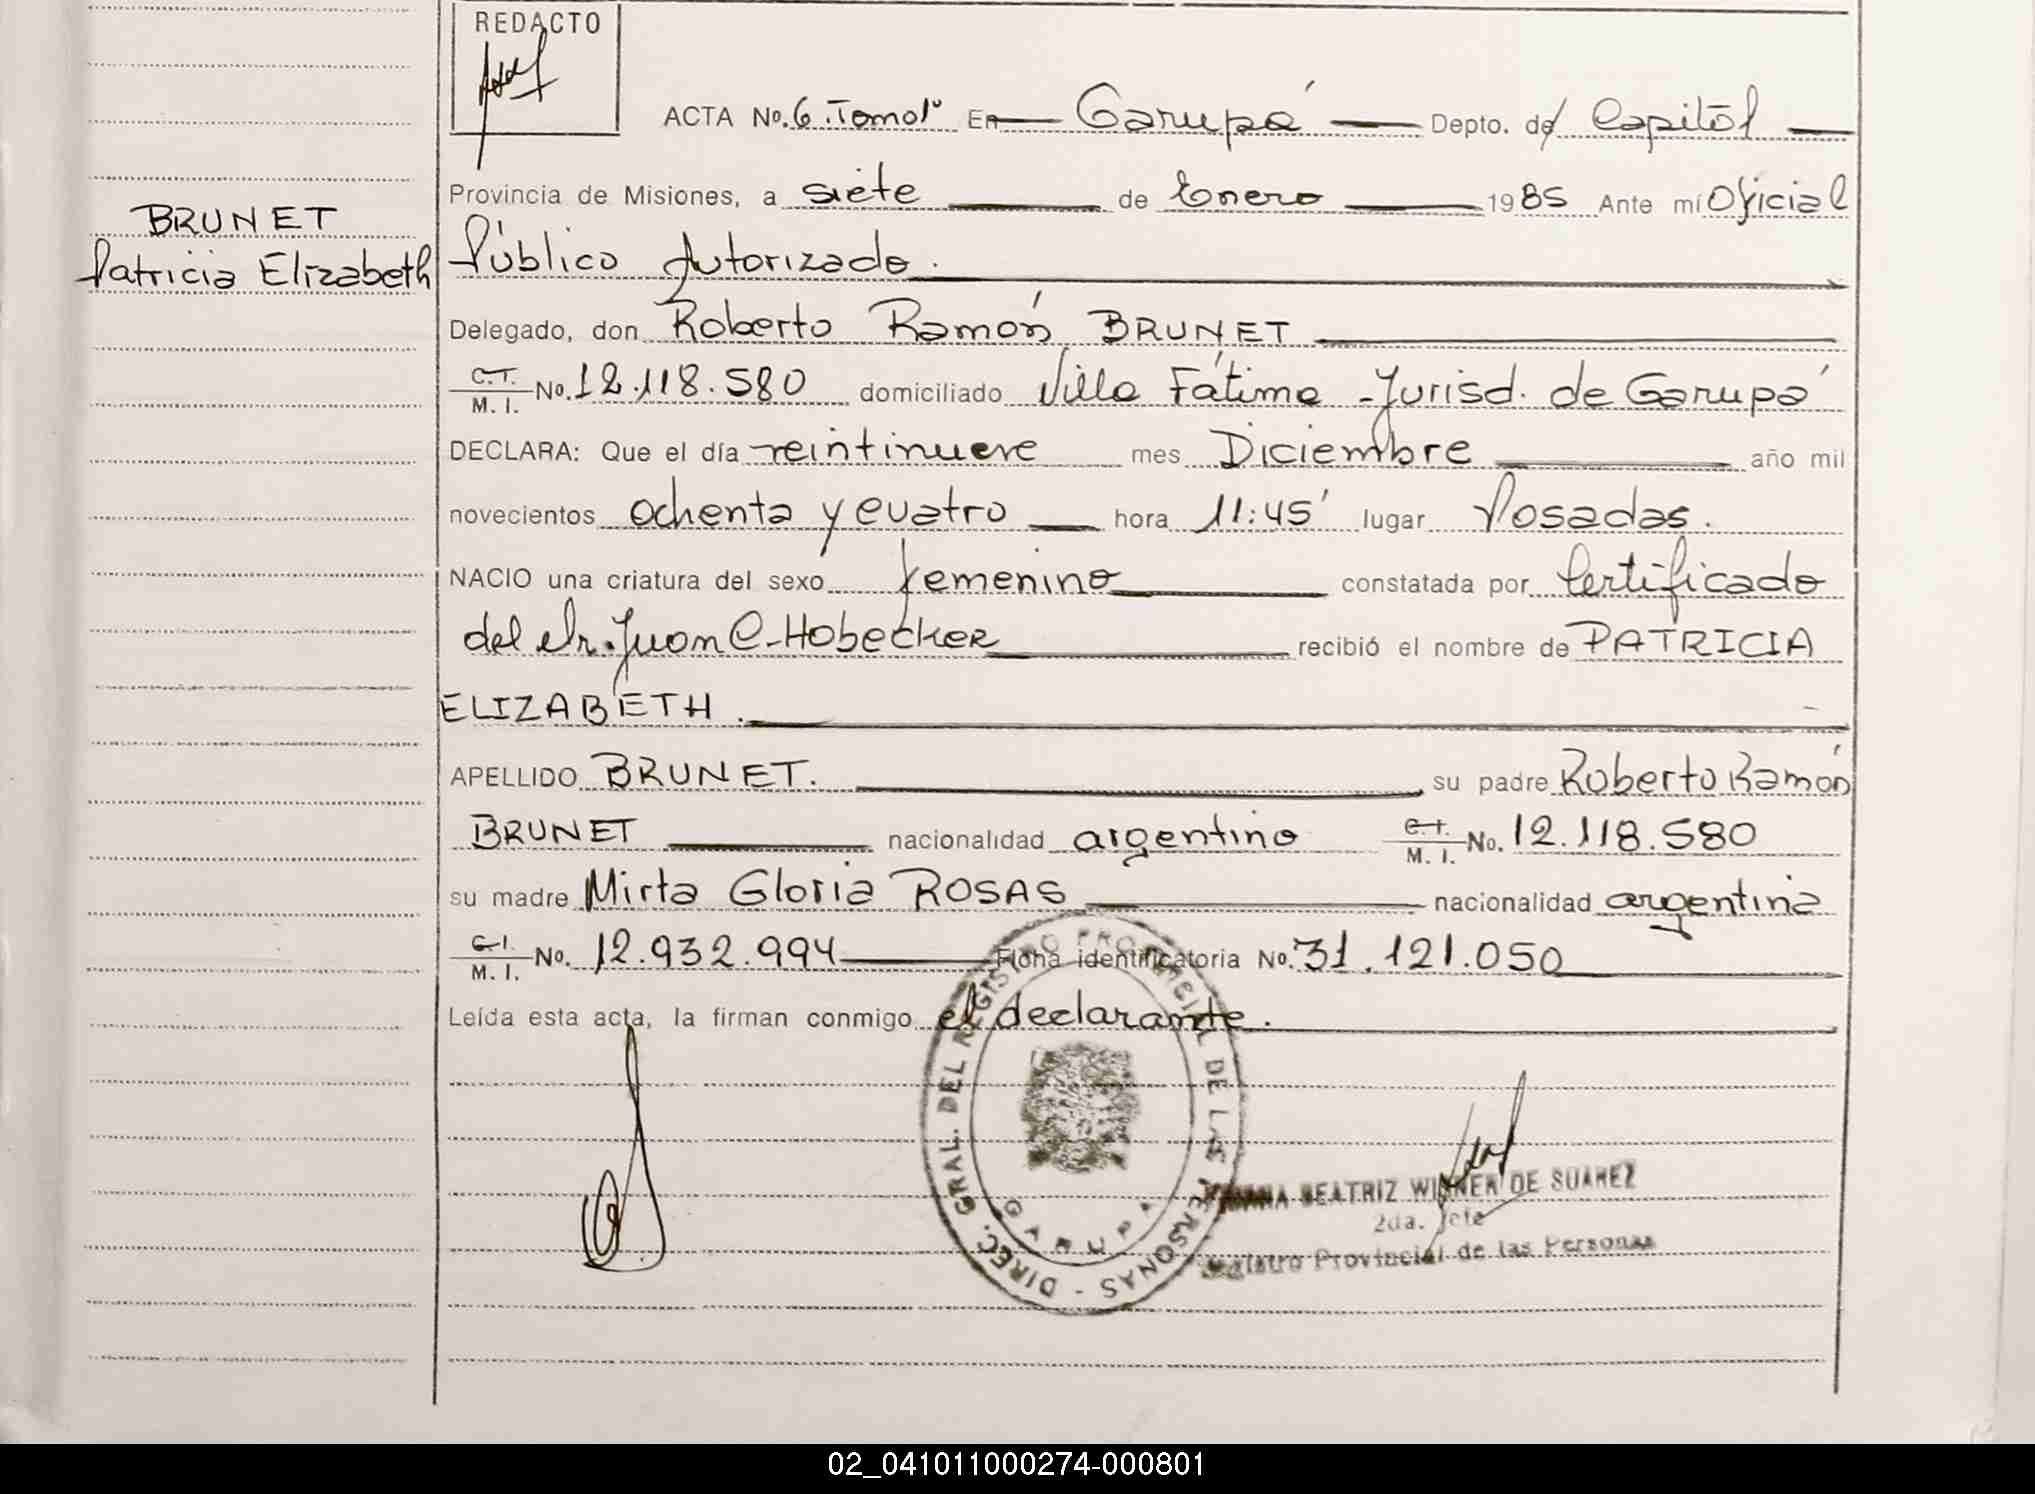 REDACTO
ACTA No. 6 Tomo 1º En Garupá Depto. de Capital
Provincia de Misiones, a siete de Enero 1985 Ante mí Oficial
BRUNET
Patricia Elizabeth
Público Autorizado.
Delegado, don Roberto Ramón BRUNET
C.I. M. I. No. 12.118.580 domiciliado Villa Fátima - Jurisd. de Garupá
DECLARA: Que el día veintinueve mes Diciembre año mil
novecientos ochenta y cuatro hora 11:45' lugar Posadas.
NACIO una criatura del sexo femenino constatada por Certificado
del Dr. Juan C. Hobecker recibió el nombre de PATRICIA
ELIZABETH.
APELLIDO BRUNET. su padre Roberto Ramón
BRUNET nacionalidad argentino C.I. M. I. No. 12.118.580
su madre Mirta Gloria ROSAS nacionalidad argentina
C.I. M. I. No. 12.932.994 Ficha identificatoria No. 31.121.050
Leída esta acta, la firman conmigo el declarante.
DIREC. GRAL. DEL REGISTRO PROVINCIAL DE LAS PERSONAS -
GARUPA
BEATRIZ WINNER DE SUAREZ
2da. Jefe
Registro Provincial de las Personas
02_041011000274-000801